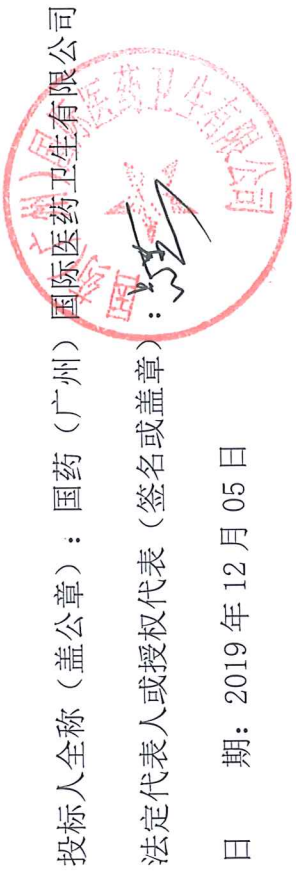 投标人全称（盖公章）：国药（广州）国际医药卫生有限公司
法定代表人或授权代表（签名或盖章）：
日 期：2019 年 12 月 05 日
国药（广州）国际医药卫生有限公司